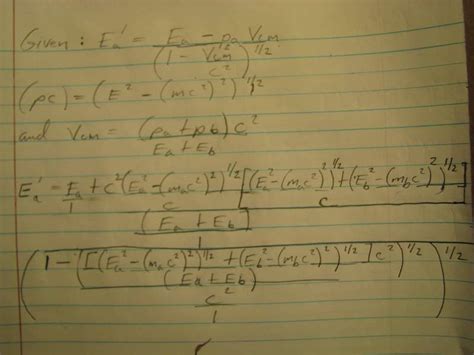 Given: Ea' = (Ea - pa Vcm) / (1 - Vcm²/c²)^1/2
(pc) = (E² - (mc²)²)^1/2
and Vcm = (pa + pb)c² / (Ea + Eb)
Ea' = Ea/1 + c²(Ea² - (mac²)²)^1/2 [(Ea² - (mac²)²)^1/2 + (Eb² - (mbc²)²)^1/2] / c
(Ea + Eb)
1
(1 - [[(Ea² - (mac²)²)^1/2 + (Eb² - (mbc²)²)^1/2]c²)^1/2)^1/2
(Ea + Eb)
c²
1